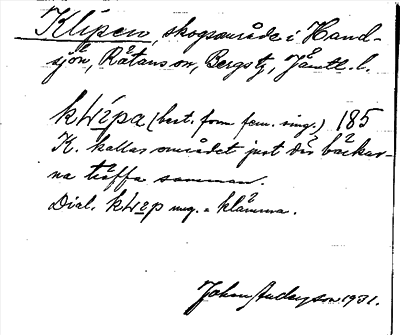 Klipen, skogsområde i Hand-
sjön, Rätans sn, Bergs tg, Jämtl. l.
klipa (best. form fem. sing.) 185
K. kallas området just där bäckar-
na träffa samman.
Dial. klip mg. = klämma.
Johan Anderson 1931.